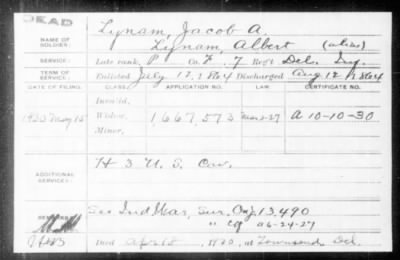 DEAD
NAME OF SOLDIER: Lynam, Jacob A.
Lynam, Albert (alias)
SERVICE: Late rank, P Co. F, 7 Reg't Del. Inf.
TERM OF SERVICE: Enlisted July 12, 1864 Discharged Aug 12 1864
DATE OF FILING. CLASS. APPLICATION NO. LAW. CERTIFICATE NO.
Invalid,
1930 May 15 Widow, 1,667,573 A 10-10-30
Minor,
ADDITIONAL SERVICE: H 3 U. S. Cav.
REMARKS: See Ind War, Sur. Orig 13,490
" Ctf
Died 1930, at Townsend Del.